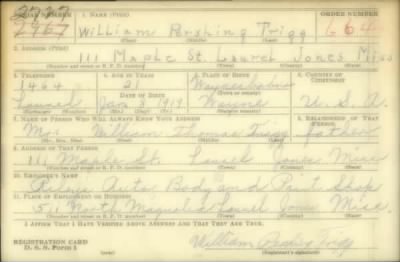 SERIAL NUMBER 1. NAME (Print) ORDER NUMBER
William Pershing Trigg
(First) (Middle) (Last)
2. ADDRESS (Print)
111 Maple St. Laurel Jones Miss
(Number and street or R. F. D. number) (Town) (County) (State)
3. TELEPHONE 4. AGE IN YEARS 5. PLACE OF BIRTH 6. COUNTRY OF CITIZENSHIP
1464 21 Waynesboro
DATE OF BIRTH (Town or county)
Laurel Jan 8 1919 Wayne U. S. A.
(Exchange) (Number) (Mo.) (Day) (Yr.) (State or country)
7. NAME OF PERSON WHO WILL ALWAYS KNOW YOUR ADDRESS 8. RELATIONSHIP OF THAT PERSON
Mr. William Thomas Trigg father
(Mr., Mrs., Miss) (First) (Middle) (Last)
9. ADDRESS OF THAT PERSON
111 Maple St. Laurel Jones Miss
(Number and street or R. F. D. number) (Town) (County) (State)
10. EMPLOYER'S NAME
Auto Body and Paint Shop
11. PLACE OF EMPLOYMENT OR BUSINESS
511 North Magnolia Laurel Jones Miss.
(Number and street or R. F. D. number) (Town) (County) (State)
I AFFIRM THAT I HAVE VERIFIED ABOVE ANSWERS AND THAT THEY ARE TRUE.
REGISTRATION CARD
D. S. S. Form 1
William Trigg
(Registrant's signature)